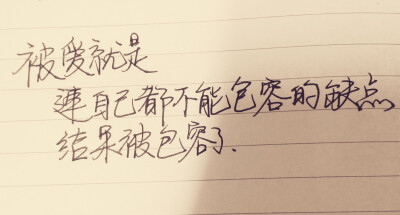 被爱就是
連自己都不能包容的缺点
结果被包容了.